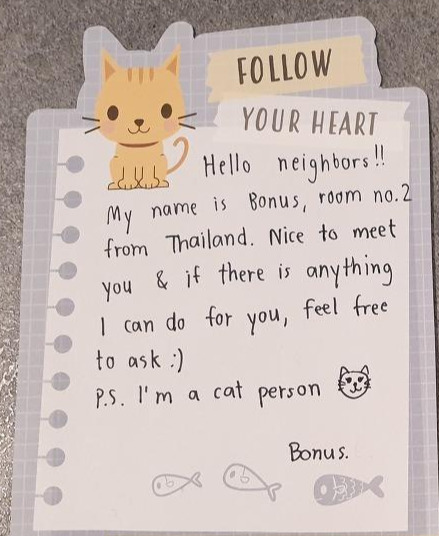 FOLLOW
YOUR HEART
Hello neighbors!!
My name is Bonus, room no.2
from Thailand. Nice to meet
you & if there is anything
I can do for you, feel free
to ask :)
P.S. I'm a cat person
Bonus.